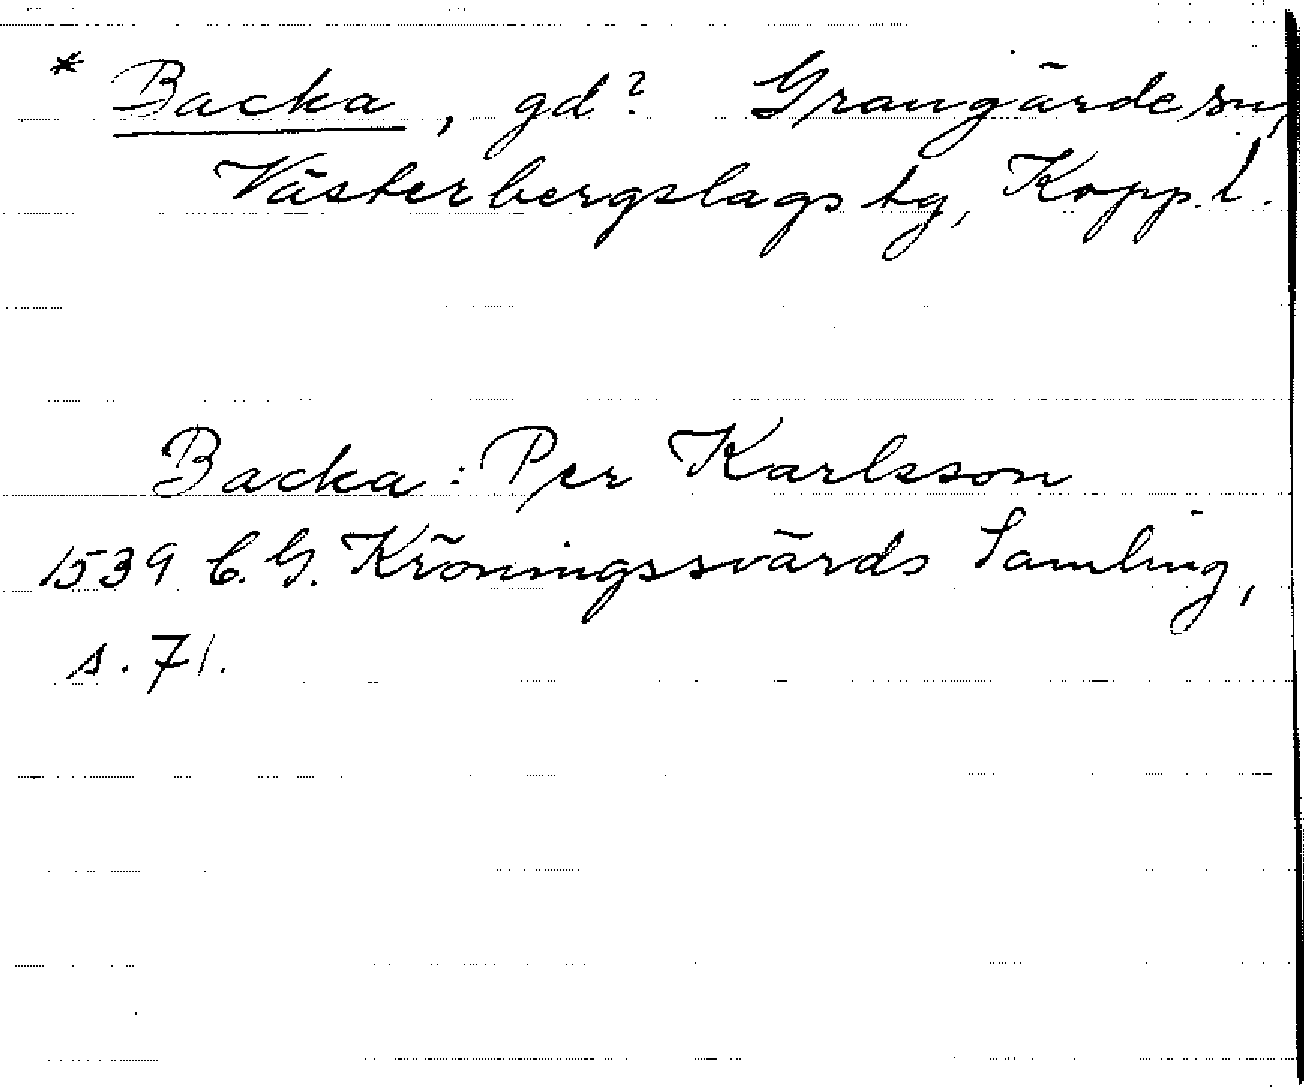 * Backa, gd? Grangärde sn,
Västerbergslags tg, Kopp. l.
Backa: Per Karlsson
1539 C. G. Kröningssvärds Samling,
s. 71.